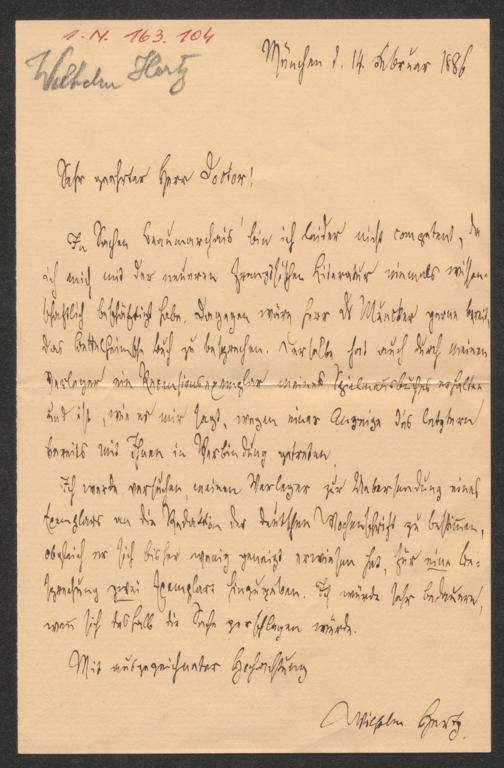 I.N. 163.104
Wilhelm Hertz
München d. 14. Februar 1886
Sehr geehrter Herr Doctor!
In Sachen Beaumarchais' bin ich leider nicht competent, da
ich mich mit der neueren französischen Literatur niemals wissen-
schaftlich beschäftigt habe. Dagegen wäre Herr Dr Muncker gerne bereit,
das Bettelheimsche Buch zu besprechen. Derselbe hat auch durch meinen
Verleger ein Recensionsexemplar meines Spielmannsbuches erhalten
und ist, wie er mir sagt, wegen einer Anzeige des letztern
bereits mit Ihnen in Verbindung getreten.
Ich werde versuchen, meinen Verleger zur Uebersendung eines
Exemplars an die Redaktion der deutschen Wochenschrift zu bestimmen,
obgleich er sich bisher wenig geneigt erwiesen hat, für eine Be-
sprechung zwei Exemplare hinzugeben. Ich würde sehr bedauern,
wenn sich deshalb die Sache zerschlagen würde.
Mit ausgezeichneter Hochachtung
Wilhelm Hertz.